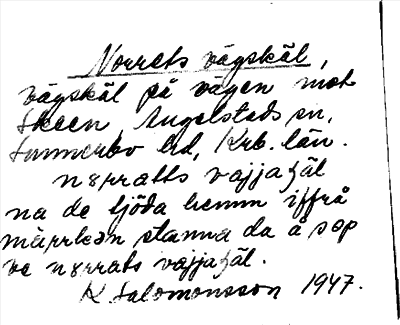 Norrets vägskäl,
vägskäl på vägen mot
Skeen, Angelstads sn,
Sunnerbo hd, Krb. län.
nɔrratts vajjaʃäl
na de tjöda hemm iffrå
märrken stanna da å sop
ve nɔrrats vajjaʃäl.
K Salomonsson 1947.